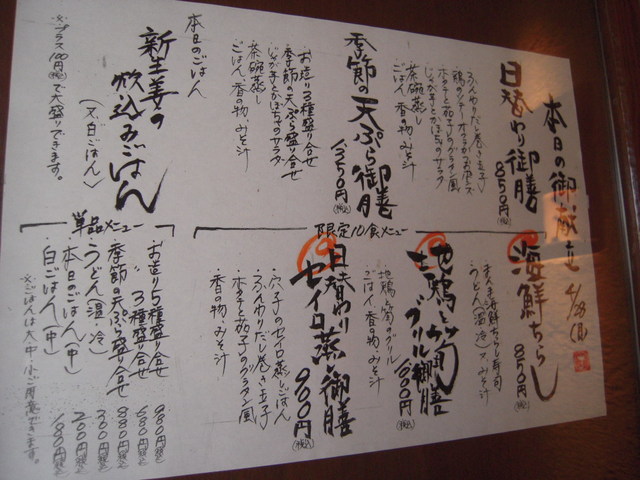 本日の御献立 4/23(月)
日替わり御膳
850円(税込)
ふんわりだし巻き玉子
ホタテと茄子のグラタン風
じゃが芋とかぼちゃのサラダ
茶碗蒸し
ごはん、香の物、みそ汁
季節の天ぷら御膳
1,350円(税込)
お造り3種盛り合せ
季節の天ぷら盛り合せ
じゃが芋とかぼちゃのサラダ
茶碗蒸し
ごはん、香の物、みそ汁
本日のごはん
新生姜の
炊込みごはん
(又、白ごはん)
※プラス100円(税込)で大盛りできます。
限定10食メニュー
海鮮ちらし
850円(税込)
まんま海鮮ちらし寿司
うどん(温・冷)又、みそ汁
地鶏と筍の
グリル御膳
1,000円(税込)
地鶏と筍のグリル
ごはん、香の物、みそ汁
日替わり
セイロ蒸し御膳
900円(税込)
・穴子のセイロ蒸しごはん
・ふんわりだし巻き玉子
・ホタテと茄子のグラタン風
・香の物、みそ汁
単品メニュー
・お造り5種盛り合せ 980円(税込)
〃 3種盛り合せ 680円(税込)
・季節の天ぷら盛り合せ 880円(税込)
・うどん(温・冷) 300円(税込)
・本日のごはん(中) 200円(税込)
・白ごはん(中) 180円(税込)
※ごはんは大・中・小ご用意できます。